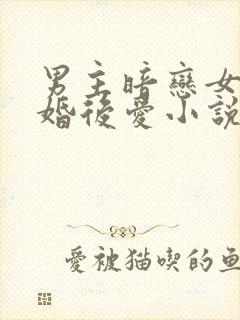 男主暗戀女
婚後愛小說
愛被猫喫的魚